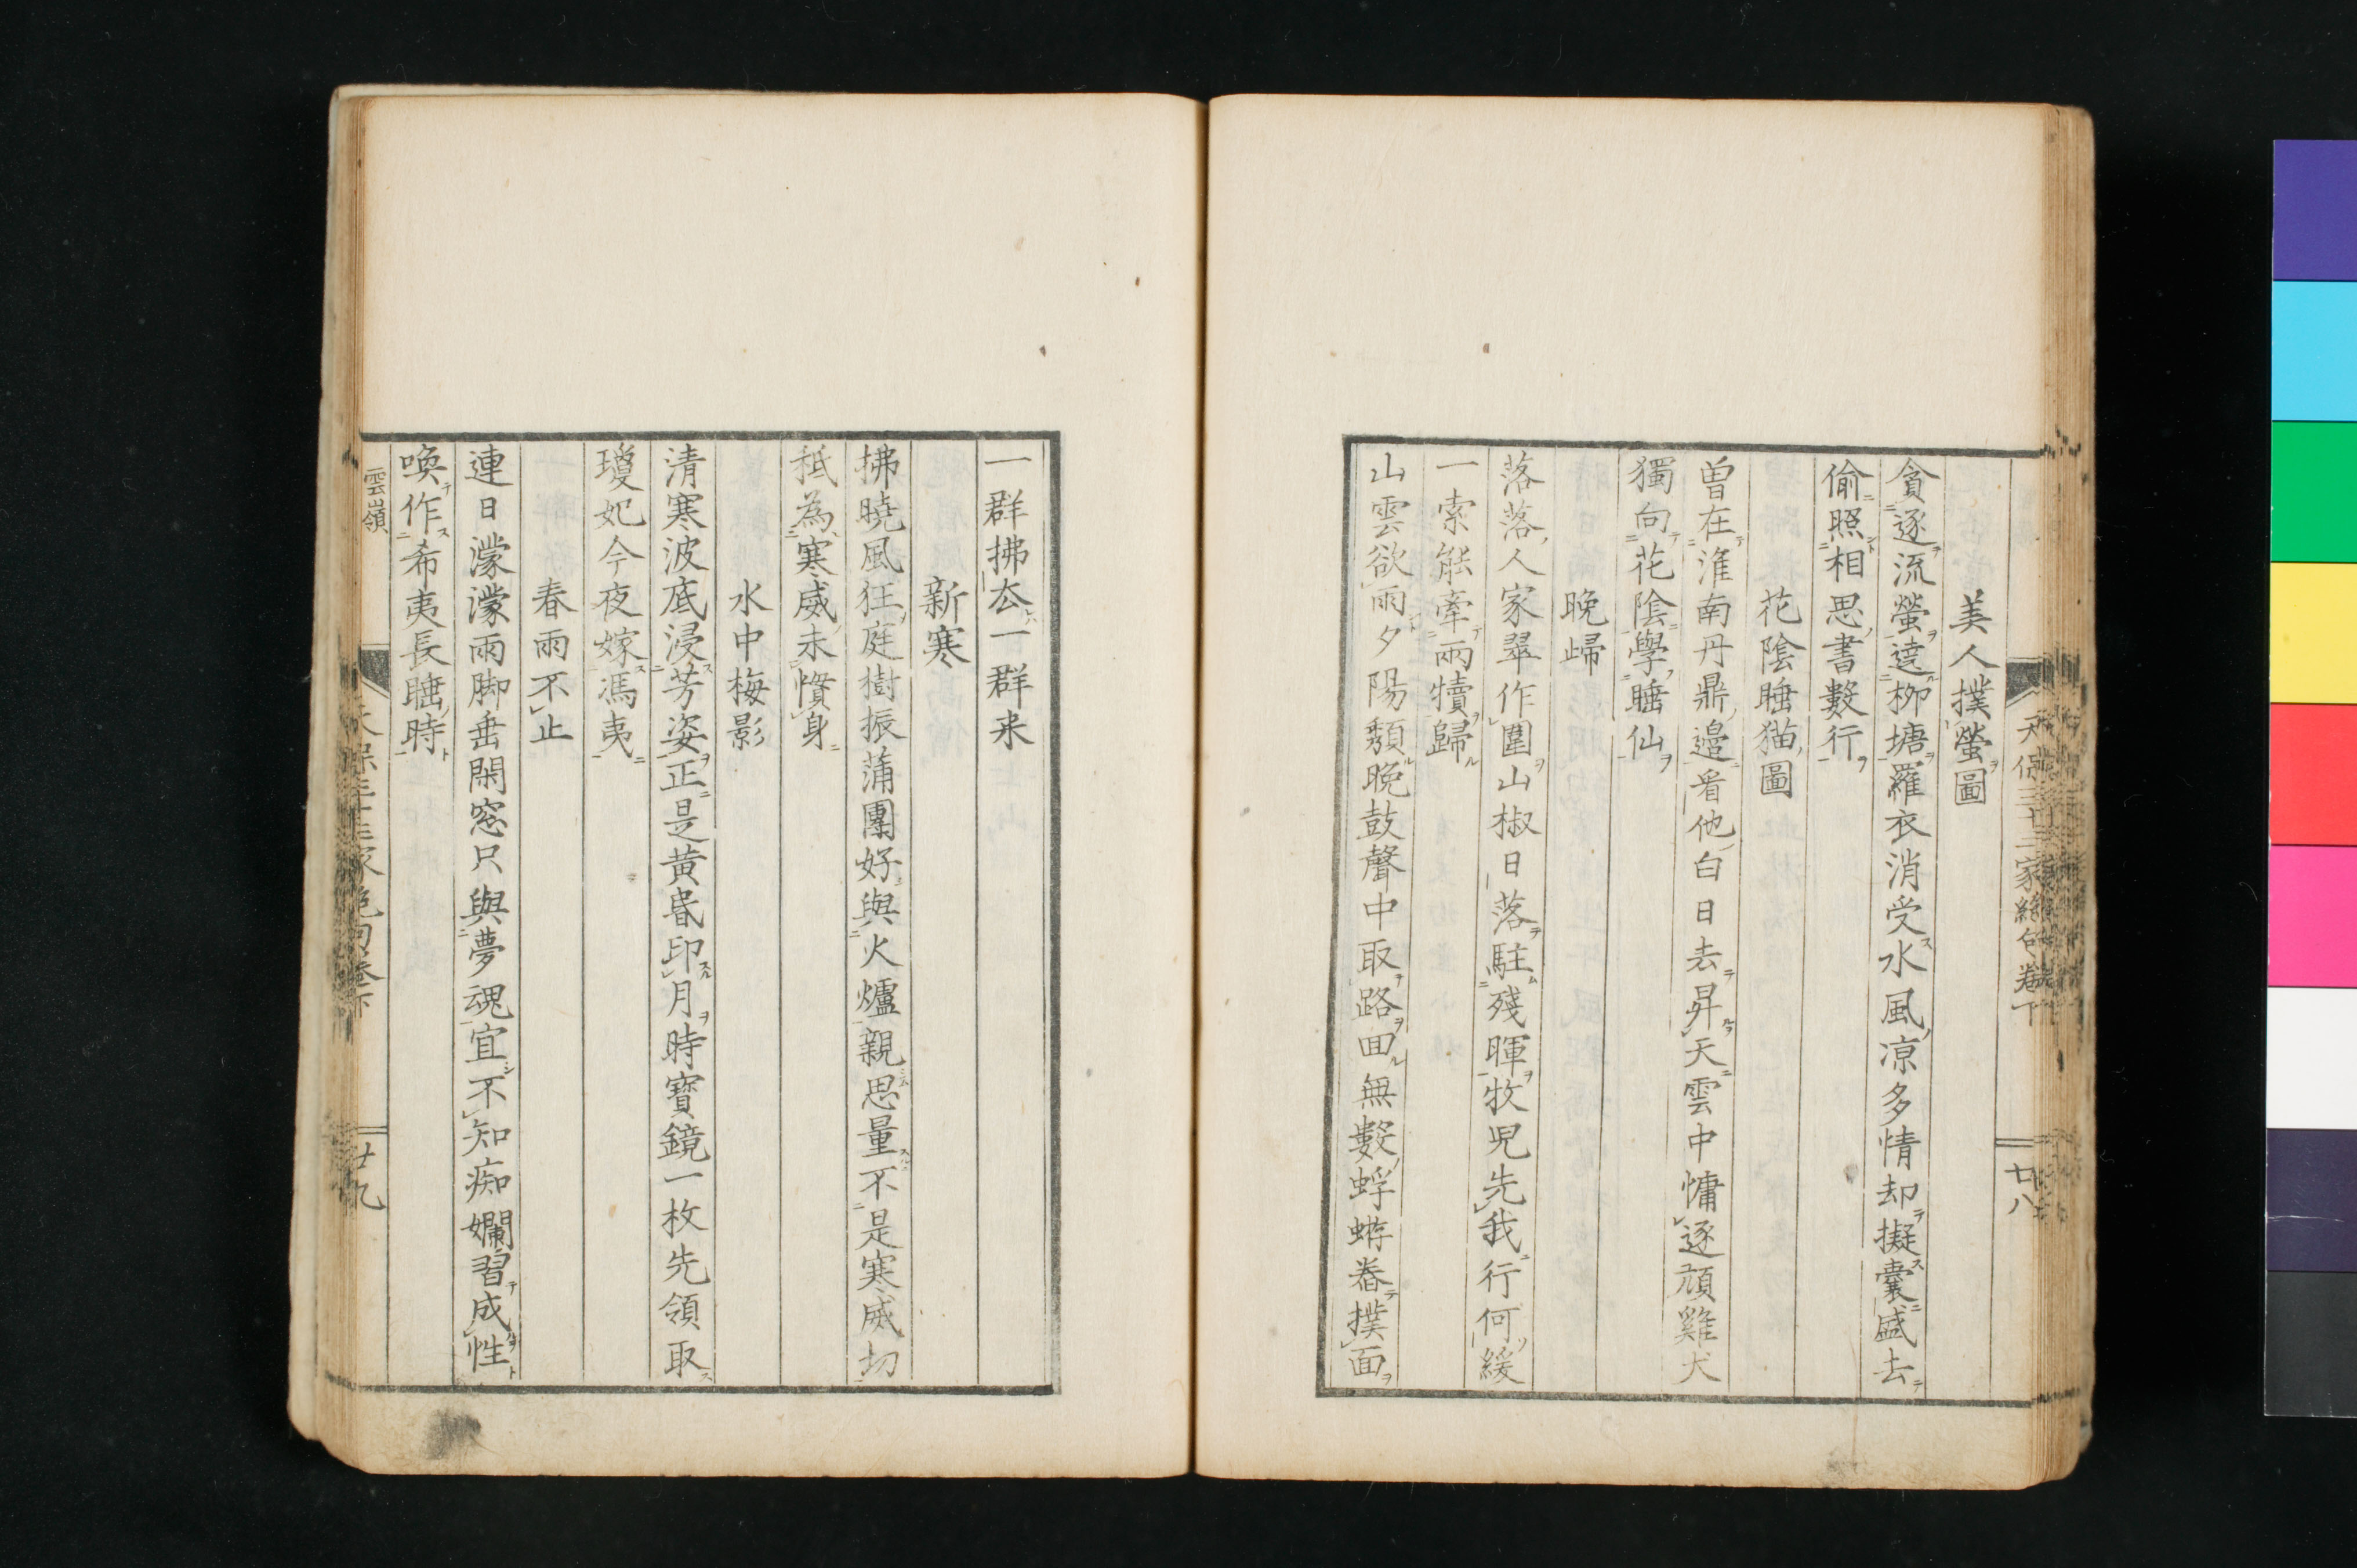 天保三十二家絶句卷下
廿八
美人撲螢圖
貪逐流螢遶柳塘羅衣消受水風凉多情却擬囊盛去
偷照相思書數行
花陰睡猫圖
曽在淮南丹鼎邉看他白日去昇天雲中慵逐頑雞犬
獨向花陰學睡仙
晚歸
落落人家翠作圍山椒日落駐殘暉牧児先我行何緩
一索能牽兩犢歸
山雲欲雨夕陽頽晚鼓聲中取路囬無數蜉蝣眷撲面
一群拂厺一群来
新寒
拂曉風狂庭樹振蒲團好與火爐親思量不是寒威切
秖為寒威未慣身
水中梅影
清寒波底浸芳姿正是黄昬印月時寳鏡一枚先領取
瓊妃今夜嫁馮夷
春雨不止
連日濛濛雨脚垂閑窓只與夢魂宜不知痴嬾習成性
喚作希夷長睡時
雲嶺
天保三十二家絶句卷下
廿九